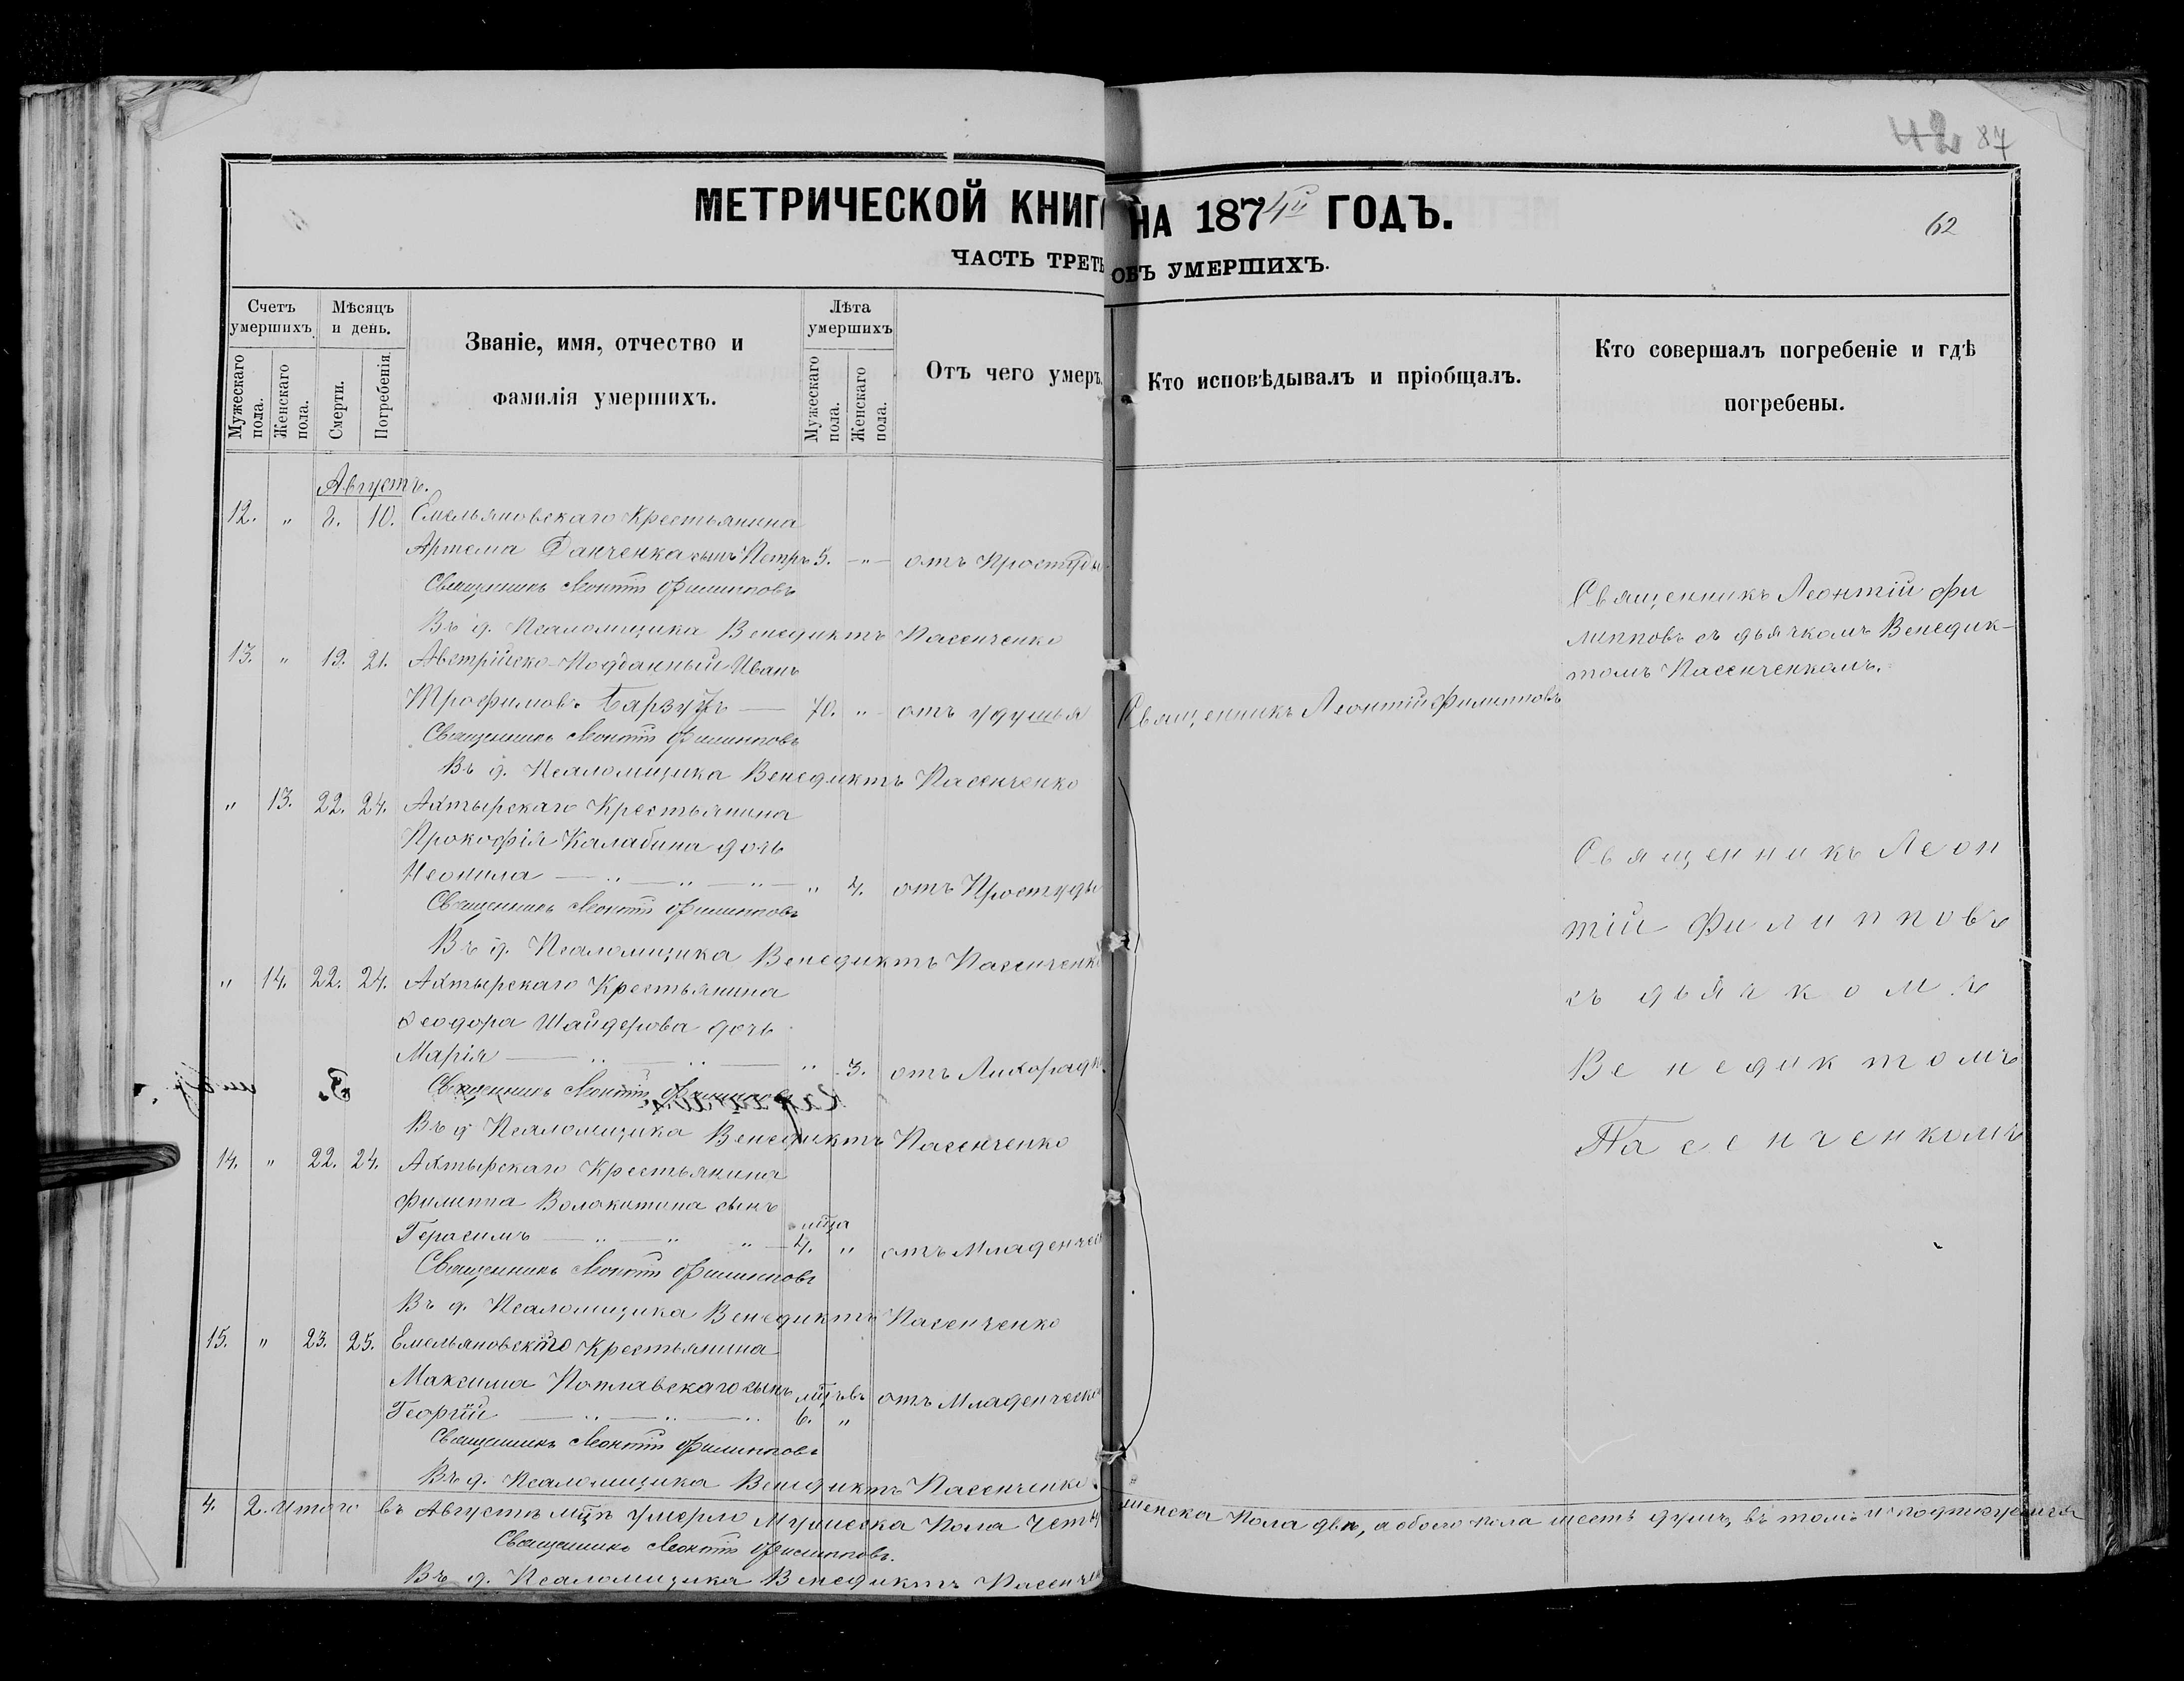 42 87
МЕТРИЧЕСКОЙ КНИГ НА 1874й ГОДЪ.
62
ЧАСТЬ ТРЕТЬ ОБЪ УМЕРШИХЪ.
Счетъ умершихъ
Мужескаго пола.
Женскаго пола.
Мѣсяцъ и день.
Смерти.
Погребенія.
Званіе, имя, отчество и
фамилія умершихъ.
Лѣта умершихъ
Мужескаго пола.
Женскаго пола.
Отъ чего умеръ.
Кто исповѣдывалъ и пріобщалъ.
Кто совершалъ погребеніе и гдѣ
погребены.
Августъ.
12. " 8. 10. Емельяновскаго Крестьянина
Артема Данченка сынъ Петръ 5. -"- отъ Простуды
Священникъ Леонтій Филипповъ
Въ д. Псаломщика Венедиктъ Пасенченко
13. " 19. 21. Австрійско-Подданный Иванъ
Трофимовъ — 70. " отъ удушья
Священникъ Леонтій Филипповъ
Священникъ Леонтій Филипповъ
Въ д. Псаломщика Венедиктъ Пасенченко
Священникъ Леонтій Фи
липповъ съ дьячкомъ Венедик-
томъ Пасенченкомъ.
" 13. 22. 24. Ахтырскаго Крестьянина
Прокофія Калабина дочь
Неонила — " — " — " — " 4. отъ Простуды
Священникъ Леонтій Филипповъ
Въ д. Псаломщика Венедиктъ Пасенченко
" 14. 22. 24. Ахтырскаго Крестьянина
Ѳеодора Шайдерова дочь
Марія — " — " — " 3. отъ Лихорадк
Священникъ Леонтій Филипповъ
Въ д. Псаломщика Венедиктъ Пасенченко
14. " 22. 24. Ахтырскаго Крестьянина
Филиппа Волокитина сынъ
мца
Герасимъ — " — " " — 4. " отъ Младенчес
Священникъ Леонтій Филипповъ
Въ д. Псаломщика Венедиктъ Пасенченко
15. " 23. 25. Емельяновскаго Крестьянина
Максима Поплавскаго сынъ мцъвъ отъ Младенческо
Георгій — " — " — " 6. "
Священникъ Леонтій Филипповъ
Въ д. Псаломщика Венедиктъ Пасенченко.
Священникъ Леон
тій Филипповъ
съ дьячкомъ
Венедиктомъ
Пасенченкомъ
4. 2. Итого въ Августѣ мцѣ умерло Мужеска Пола Четы женска Пола двѣ, а обоего пола шесть душъ, въ томъ и подписуемся
Священникъ Леонтій Филипповъ.
Въ д. Псаломщика Венедиктъ Пасенче